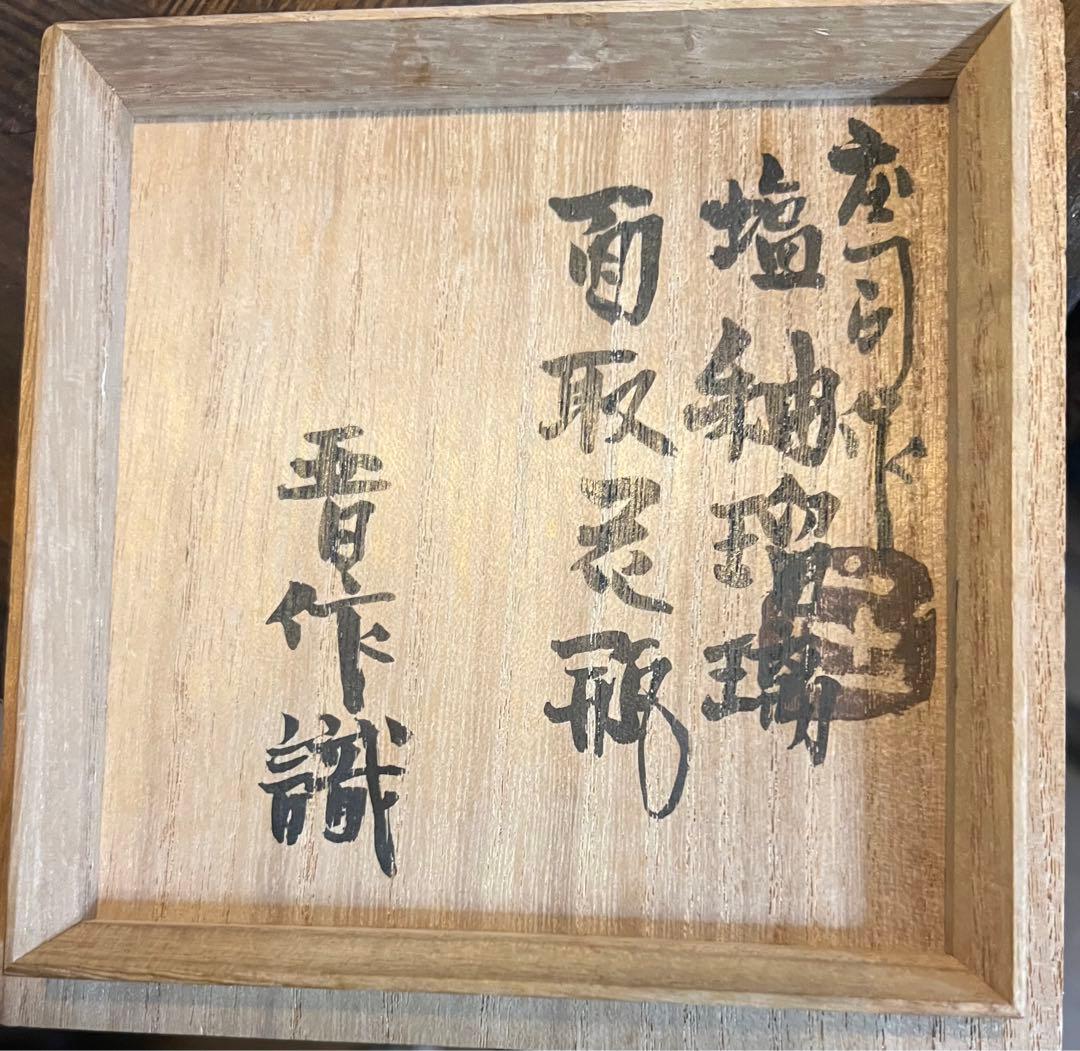 庄司作
塩釉瑠璃
面取花瓶
晋作識